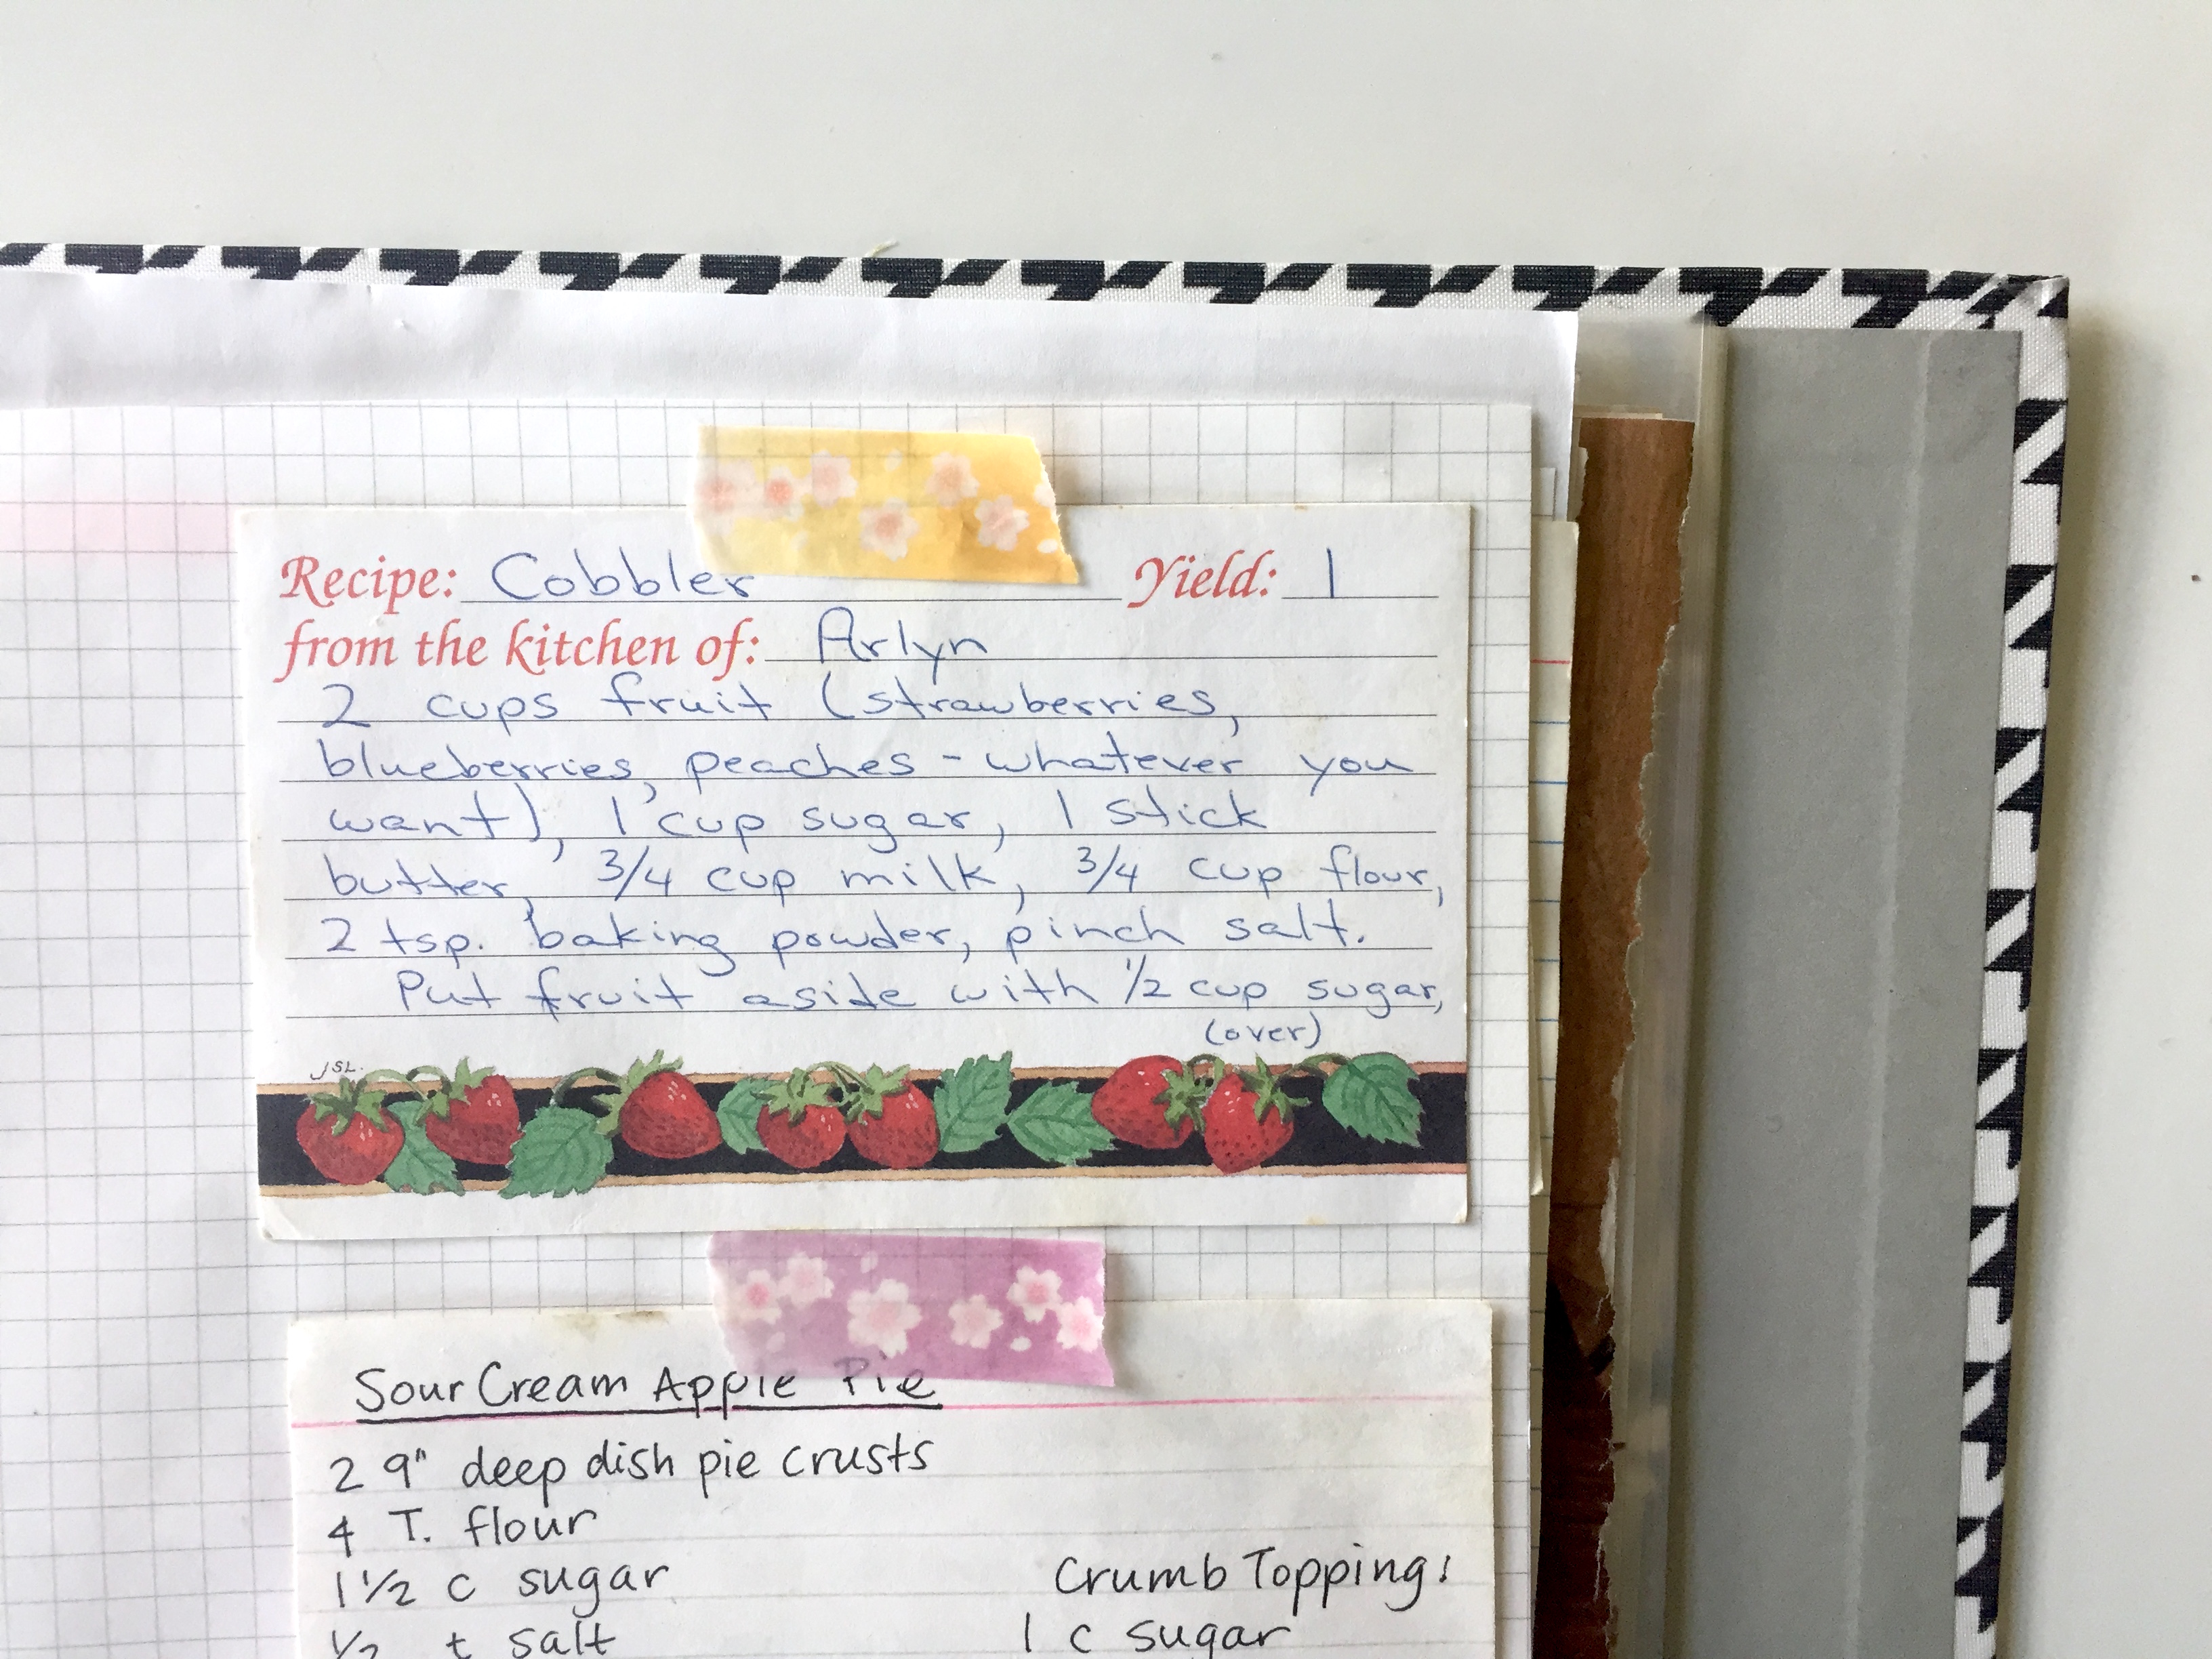 Recipe: Cobbler Yield: 1
from the kitchen of: Arlyn
2 cups fruit (strawberries,
blueberries, peaches - whatever you
want), 1 cup sugar, 1 stick
butter, 3/4 cup milk, 3/4 cup flour,
2 tsp. baking powder, pinch salt.
Put fruit aside with 1/2 cup sugar,
(over)
JSL.
Sour Cream Apple Pie
2 9" deep dish pie crusts
4 T. flour
1 1/2 c sugar
1/2 t salt
Crumb Topping:
1 c sugar